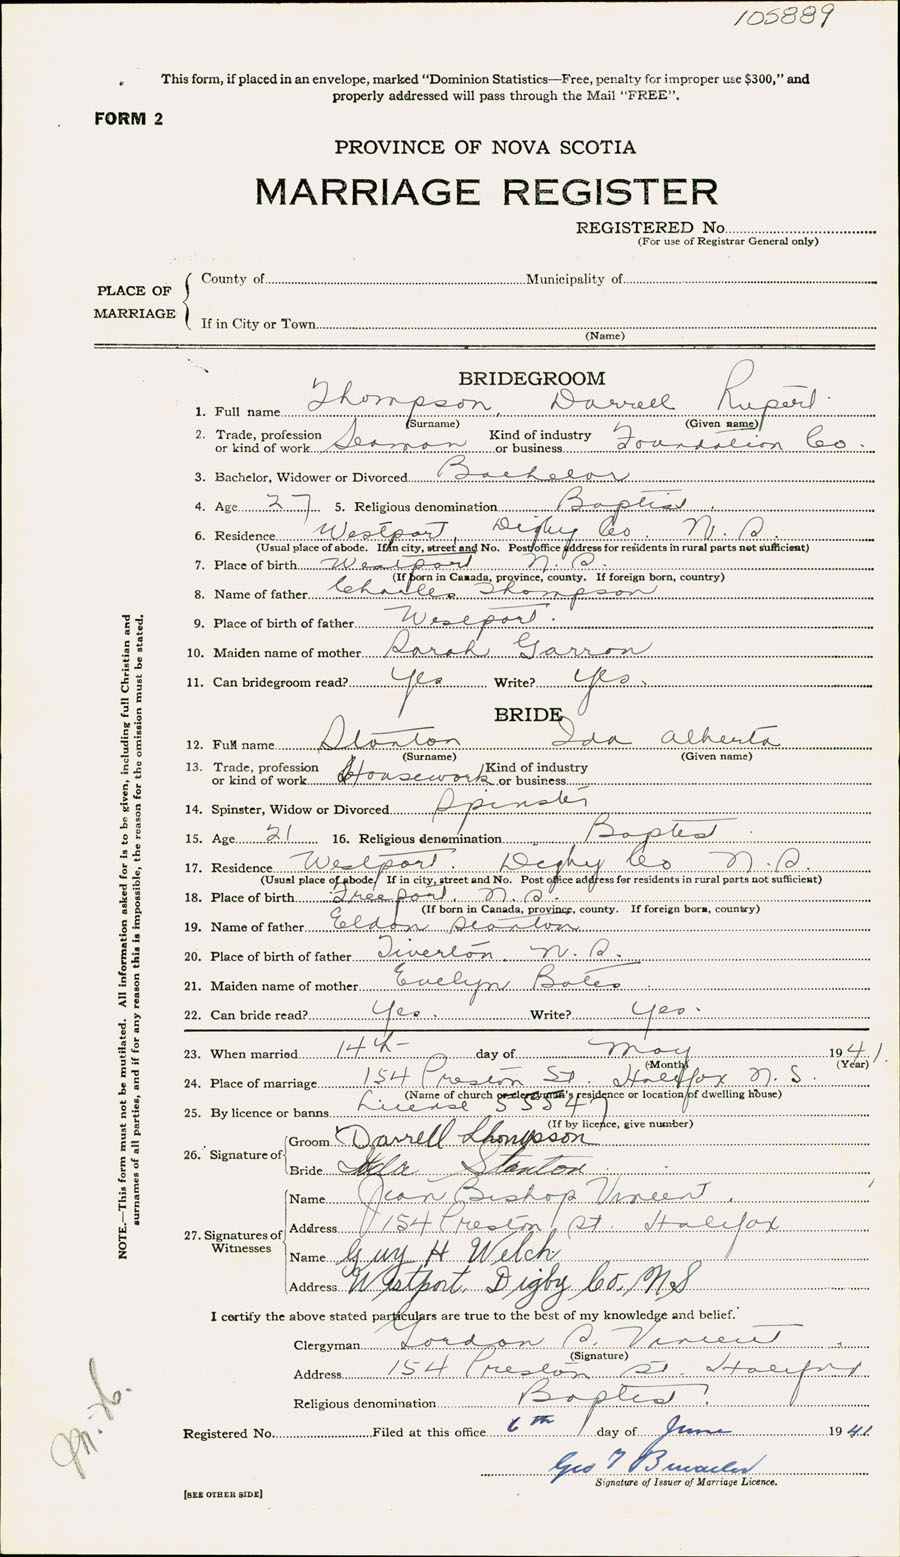 105889
This form, if placed in an envelope, marked “Dominion Statistics—Free, penalty for improper use $300,” and
properly addressed will pass through the Mail “FREE”.
FORM 2
PROVINCE OF NOVA SCOTIA
MARRIAGE REGISTER
REGISTERED No.
(For use of Registrar General only)
PLACE OF MARRIAGE
County of Municipality of
If in City or Town
(Name)
BRIDEGROOM
1. Full name Thompson, Darrell Rupert
(Surname) (Given name)
2. Trade, profession or kind of work Seaman Kind of industry or business Foundation Co.
3. Bachelor, Widower or Divorced Bachelor
4. Age 27 5. Religious denomination Baptist
6. Residence Westport, Digby Co. N.S.
(Usual place of abode. If in city, street and No. Post office address for residents in rural parts not sufficient)
7. Place of birth Westport N.S.
(If born in Canada, province, county. If foreign born, country)
8. Name of father Charles Thompson
9. Place of birth of father Westport.
10. Maiden name of mother Sarah Garron
11. Can bridegroom read? Yes Write? Yes.
BRIDE
12. Full name Stanton Ida Alberta
(Surname) (Given name)
13. Trade, profession or kind of work Housework Kind of industry or business
14. Spinster, Widow or Divorced Spinster
15. Age 21 16. Religious denomination Baptist
17. Residence Westport. Digby Co N.S.
(Usual place of abode. If in city, street and No. Post office address for residents in rural parts not sufficient)
18. Place of birth Freeport, N.S.
(If born in Canada, province, county. If foreign born, country)
19. Name of father Eldon Stanton
20. Place of birth of father Tiverton, N.S.
21. Maiden name of mother Evelyn Bates
22. Can bride read? Yes. Write? Yes.
23. When married 14th day of May 1941.
(Month) (Year)
24. Place of marriage 154 Preston St. Halifax N.S.
(Name of church or clergyman's residence or location of dwelling house)
25. By licence or banns License 55547
(If by licence, give number)
26. Signature of Groom Darrell Thompson
Bride Ida Stanton
27. Signatures of Witnesses
Name Jean Bishop Vincent
Address 154 Preston St. Halifax
Name Guy H Welch
Address Westport, Digby Co. N S
I certify the above stated particulars are true to the best of my knowledge and belief.
Clergyman Gordon S. Vincent
(Signature)
Address 154 Preston St. Halifax
Religious denomination Baptist
Registered No. Filed at this office 6th day of June 1941
Geo T
Signature of Issuer of Marriage Licence.
[SEE OTHER SIDE]
NOTE.—This form must not be mutilated. All information asked for is to be given, including full Christian and
surnames of all parties, and if for any reason this is impossible, the reason for the omission must be stated.